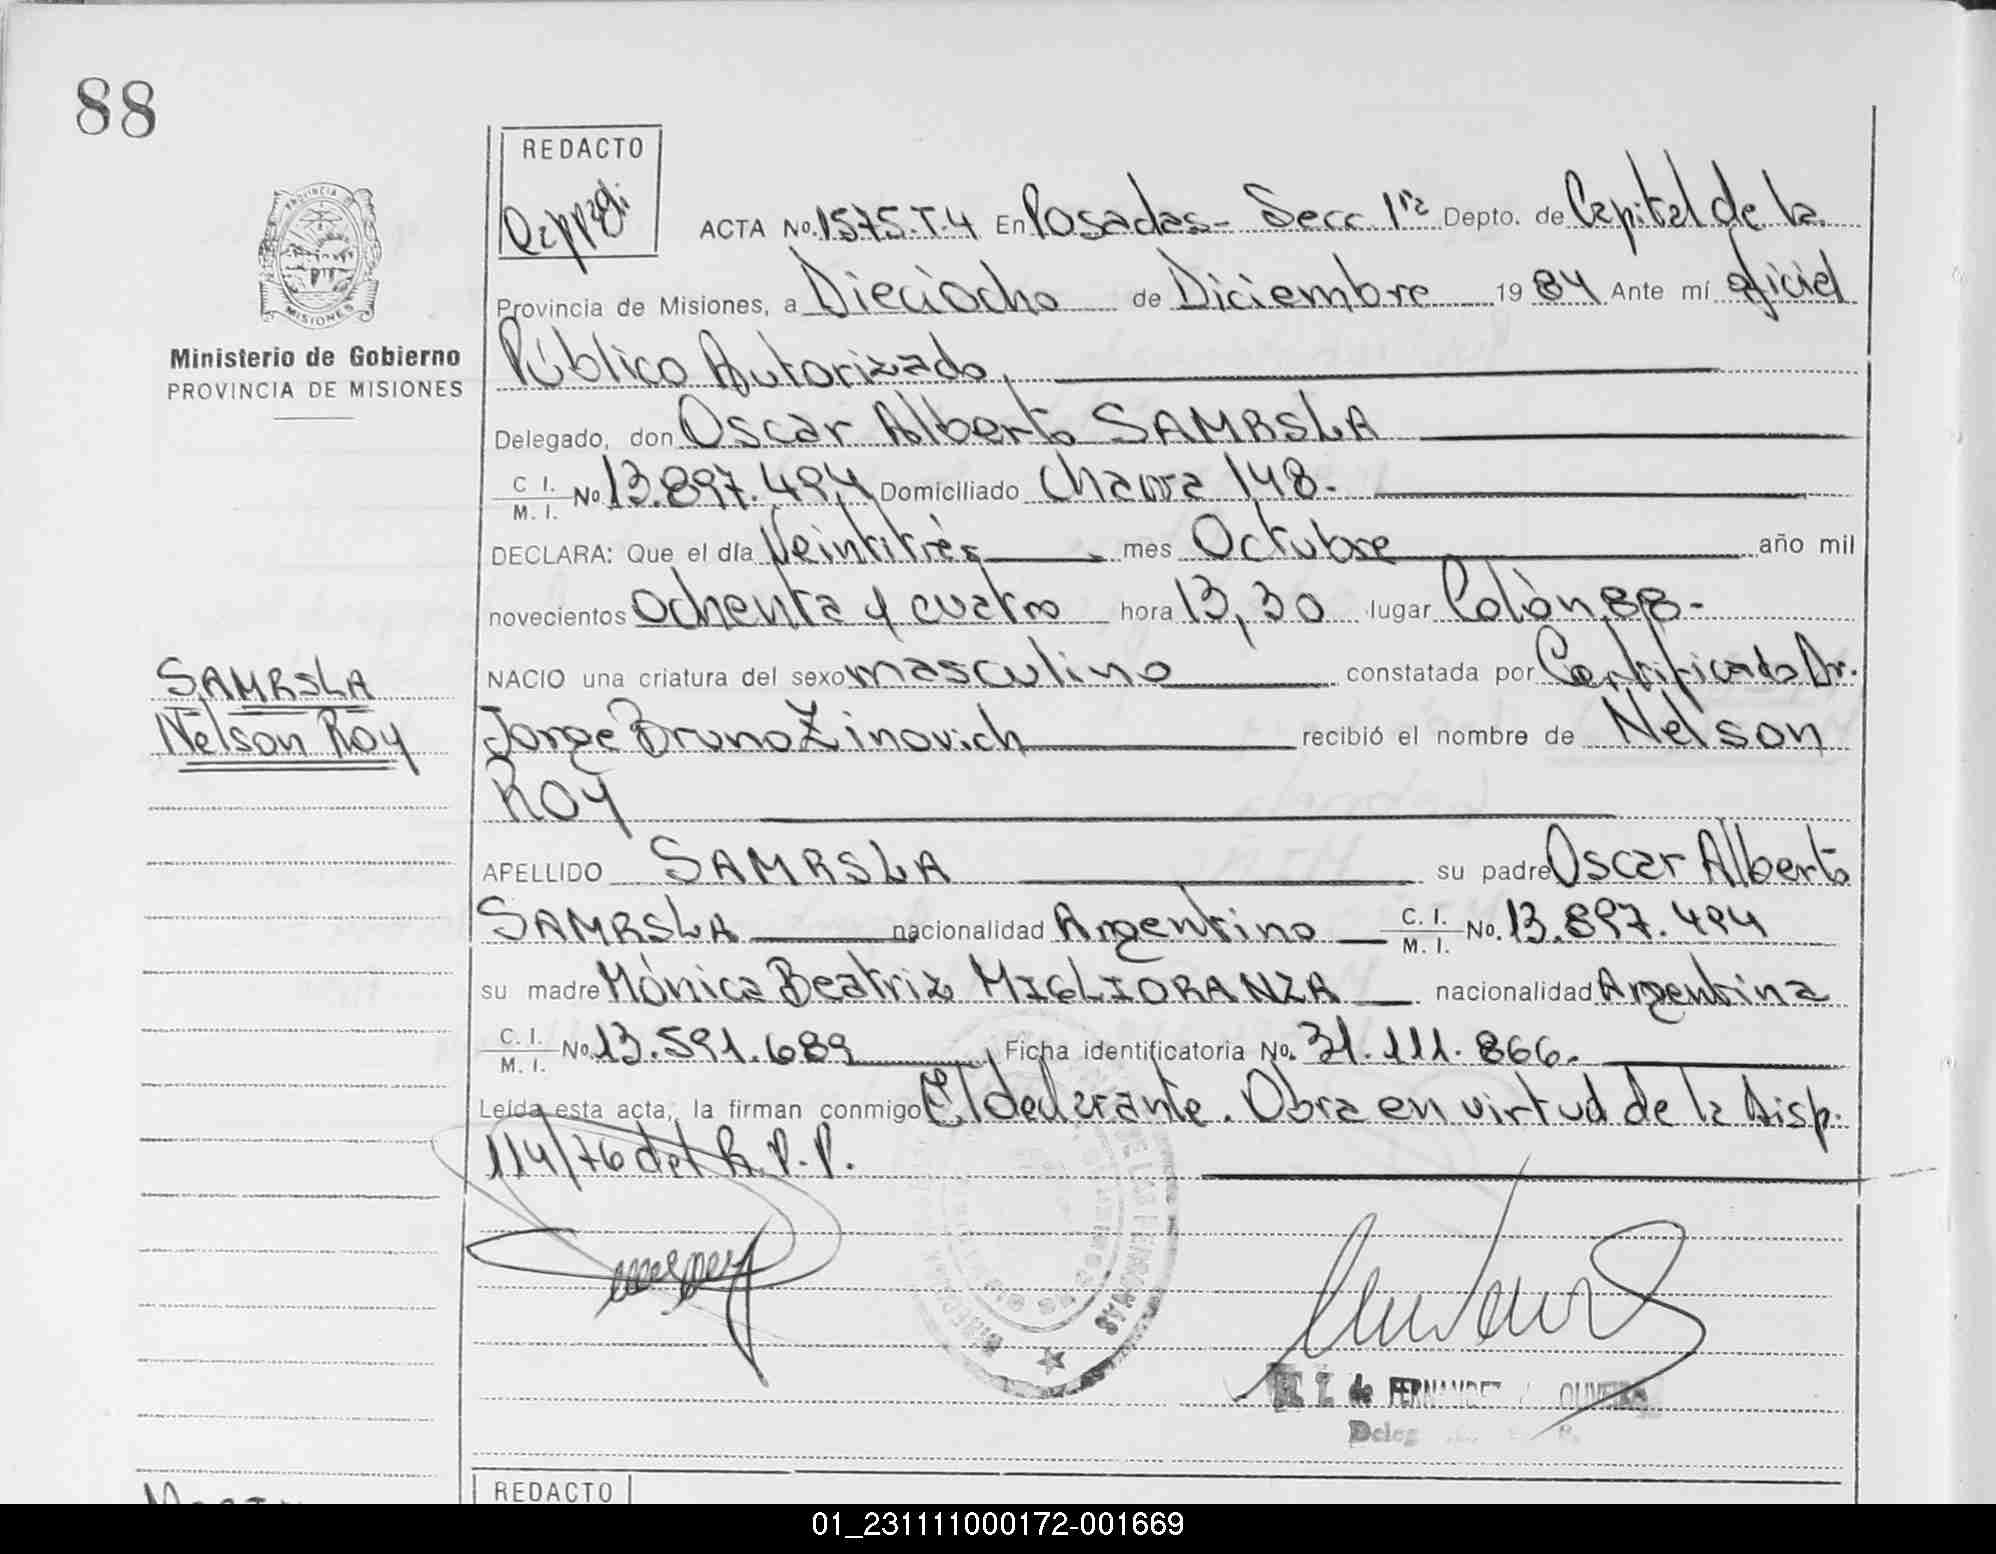 88
REDACTO
PROVINCIA
MISIONES
ACTA No. 1575.T.4 En Posadas - Secc 1ra Depto. de Capital de la
Provincia de Misiones, a Dieciocho de Diciembre 1984 Ante mí oficial
Ministerio de Gobierno
PROVINCIA DE MISIONES
Público Autorizado,
Delegado, don Oscar Alberto SAMRSLA
C I. M. I. No 13.897.494 Domiciliado Chacra 148.
DECLARA: Que el día Veintitrés mes Octubre año mil
novecientos ochenta y cuatro hora 13,30 lugar Colón 88-
NACIO una criatura del sexo masculino constatada por Certificado Dr.
SAMRSLA
Nelson Roy
Jorge Bruno Zinovich recibió el nombre de Nelson
Roy
APELLIDO SAMRSLA su padre Oscar Alberto
SAMRSLA nacionalidad Argentino C. I. M. I. No. 13.897.494
su madre Mónica Beatriz MIGLIORANZA nacionalidad Argentina
C. I. M. I. No. 13.591.689 Ficha identificatoria No. 31.111.866.
Leída esta acta, la firman conmigo El declarante. Obra en virtud de la Disp.
114/76 del R.P.P.
de FERNANDEZ OLIVEIRA
Deleg
REDACTO
01_231111000172-001669